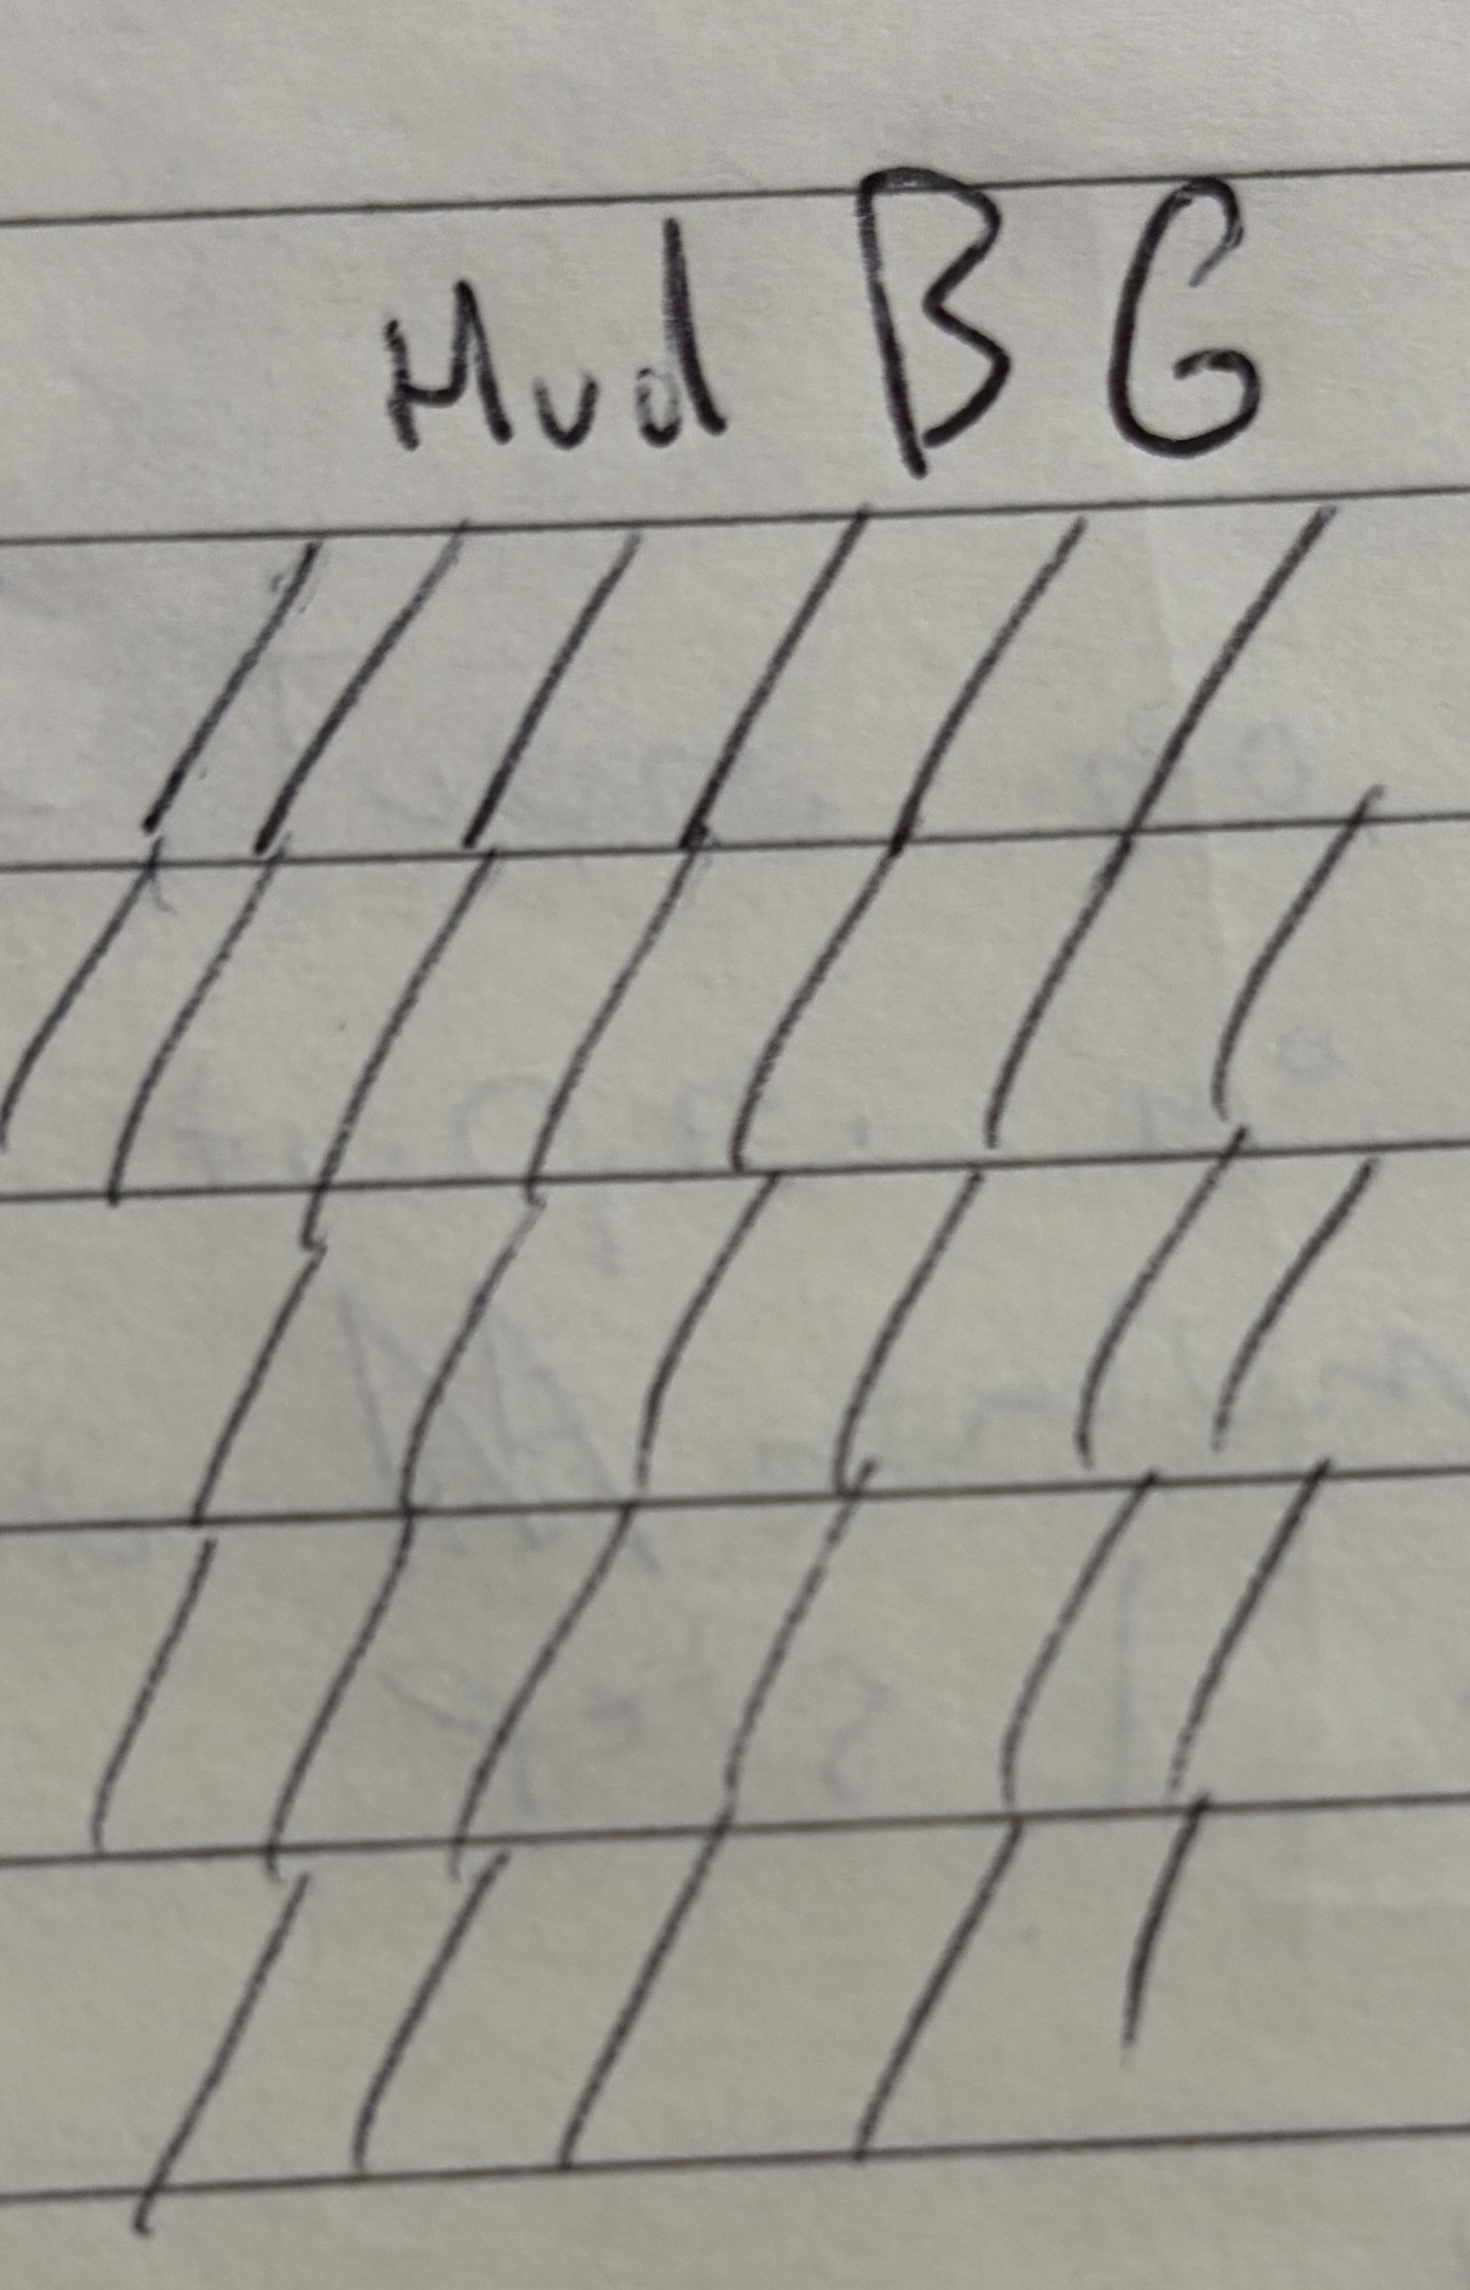 Mud B G
/ / / / / /
/ / / / / / /
/ / / / / /
/ / / / / /
/ / / / /